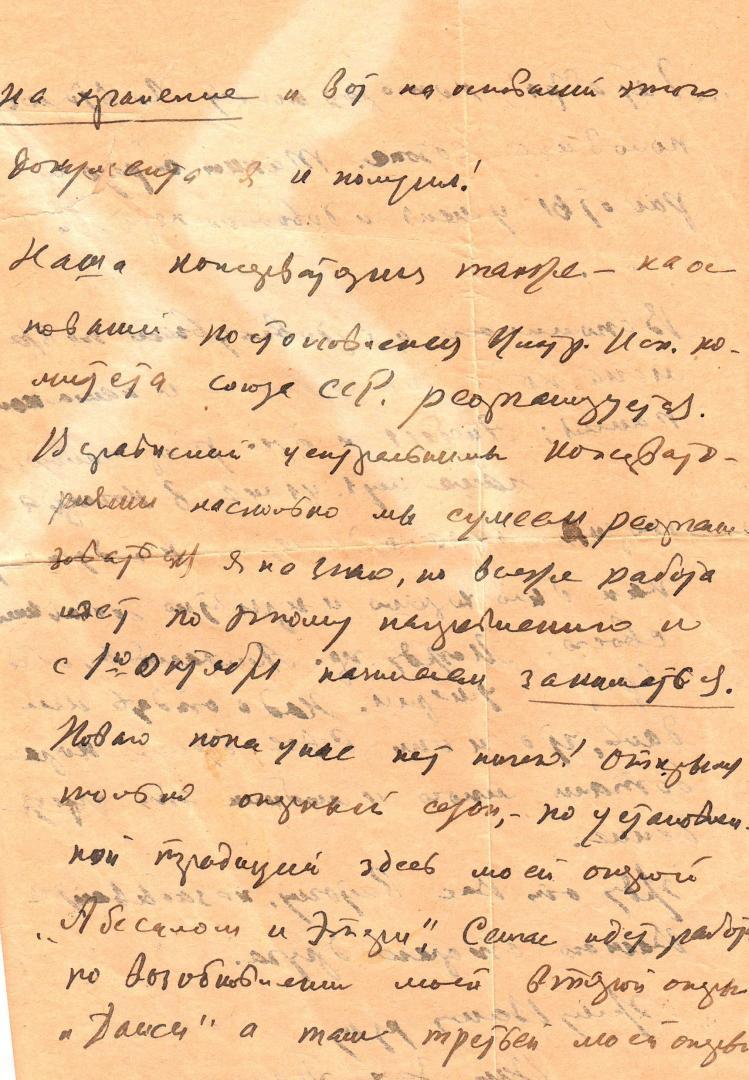 на хранение и вот на основании этого
документа я и получил!
Наша консерватория также – на ос
новании постановления Центр. Исп. ко-
митета союза ССР. реорганизуется.
В равнении центральным консервато-
риям насколько мы сумеем реоргани-
зоваться я не знаю, но всеже работа
идет по этому направлению и
с 1го Октября начинаем заниматься.
Новаго пока у нас нет ничего! Открыли
только оперный сезон, – по установлен-
ной традиции здесь моей оперой
„Абесалом и Этери“, Сейчас идет работа
по возобновлении моей второй оперы
„Даиси“ а там третьей моей оперы